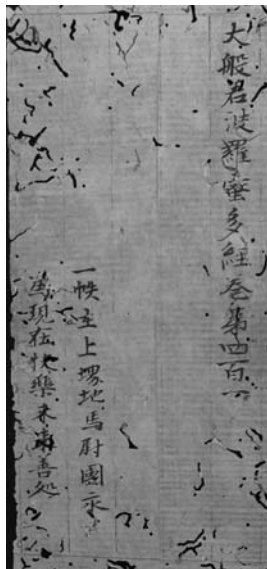 大般若波羅蜜多經卷第四百一
一帙主上塚地馬尉國永
為現在快樂未來善処